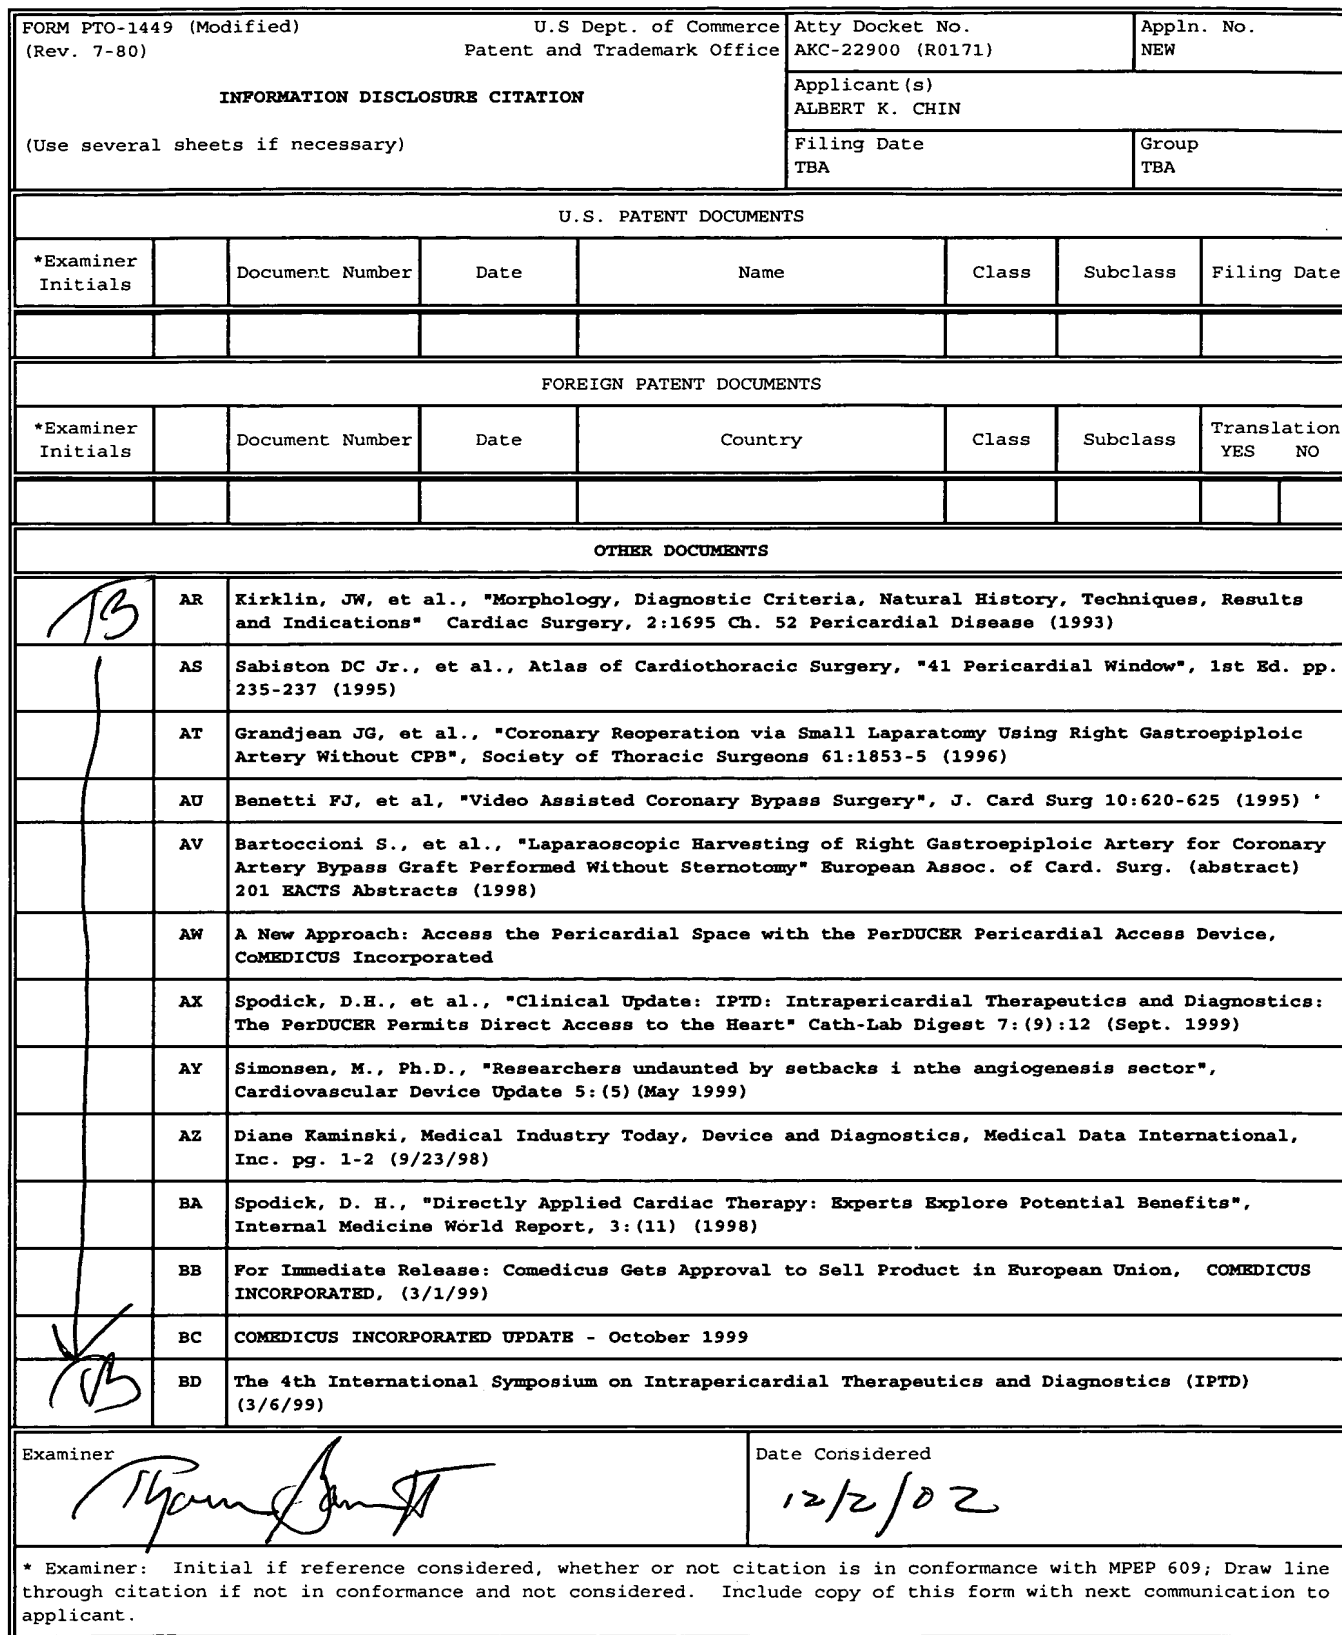 FORM PTO-1449 (Modified) U.S Dept. of Commerce
(Rev. 7-80) Patent and Trademark Office
INFORMATION DISCLOSURE CITATION
(Use several sheets if necessary)
Atty Docket No.
AKC-22900 (R0171)
Appln. No.
NEW
Applicant(s)
ALBERT K. CHIN
Filing Date
TBA
Group
TBA
U.S. PATENT DOCUMENTS
*Examiner Initials Document Number Date Name Class Subclass Filing Date
FOREIGN PATENT DOCUMENTS
*Examiner Initials Document Number Date Country Class Subclass Translation YES NO
OTHER DOCUMENTS
TB AR Kirklin, JW, et al., "Morphology, Diagnostic Criteria, Natural History, Techniques, Results
and Indications" Cardiac Surgery, 2:1695 Ch. 52 Pericardial Disease (1993)
AS Sabiston DC Jr., et al., Atlas of Cardiothoracic Surgery, "41 Pericardial Window", 1st Ed. pp.
235-237 (1995)
AT Grandjean JG, et al., "Coronary Reoperation via Small Laparatomy Using Right Gastroepiploic
Artery Without CPB", Society of Thoracic Surgeons 61:1853-5 (1996)
AU Benetti FJ, et al, "Video Assisted Coronary Bypass Surgery", J. Card Surg 10:620-625 (1995)
AV Bartoccioni S., et al., "Laparaoscopic Harvesting of Right Gastroepiploic Artery for Coronary
Artery Bypass Graft Performed Without Sternotomy" European Assoc. of Card. Surg. (abstract)
201 EACTS Abstracts (1998)
AW A New Approach: Access the Pericardial Space with the PerDUCER Pericardial Access Device,
CoMEDICUS Incorporated
AX Spodick, D.H., et al., "Clinical Update: IPTD: Intrapericardial Therapeutics and Diagnostics:
The PerDUCER Permits Direct Access to the Heart" Cath-Lab Digest 7:(9):12 (Sept. 1999)
AY Simonsen, M., Ph.D., "Researchers undaunted by setbacks i nthe angiogenesis sector",
Cardiovascular Device Update 5:(5)(May 1999)
AZ Diane Kaminski, Medical Industry Today, Device and Diagnostics, Medical Data International,
Inc. pg. 1-2 (9/23/98)
BA Spodick, D. H., "Directly Applied Cardiac Therapy: Experts Explore Potential Benefits",
Internal Medicine World Report, 3:(11) (1998)
BB For Immediate Release: Comedicus Gets Approval to Sell Product in European Union, COMEDICUS
INCORPORATED, (3/1/99)
BC COMEDICUS INCORPORATED UPDATE - October 1999
TB BD The 4th International Symposium on Intrapericardial Therapeutics and Diagnostics (IPTD)
(3/6/99)
Examiner
Date Considered
12/2/02
* Examiner: Initial if reference considered, whether or not citation is in conformance with MPEP 609; Draw line
through citation if not in conformance and not considered. Include copy of this form with next communication to
applicant.